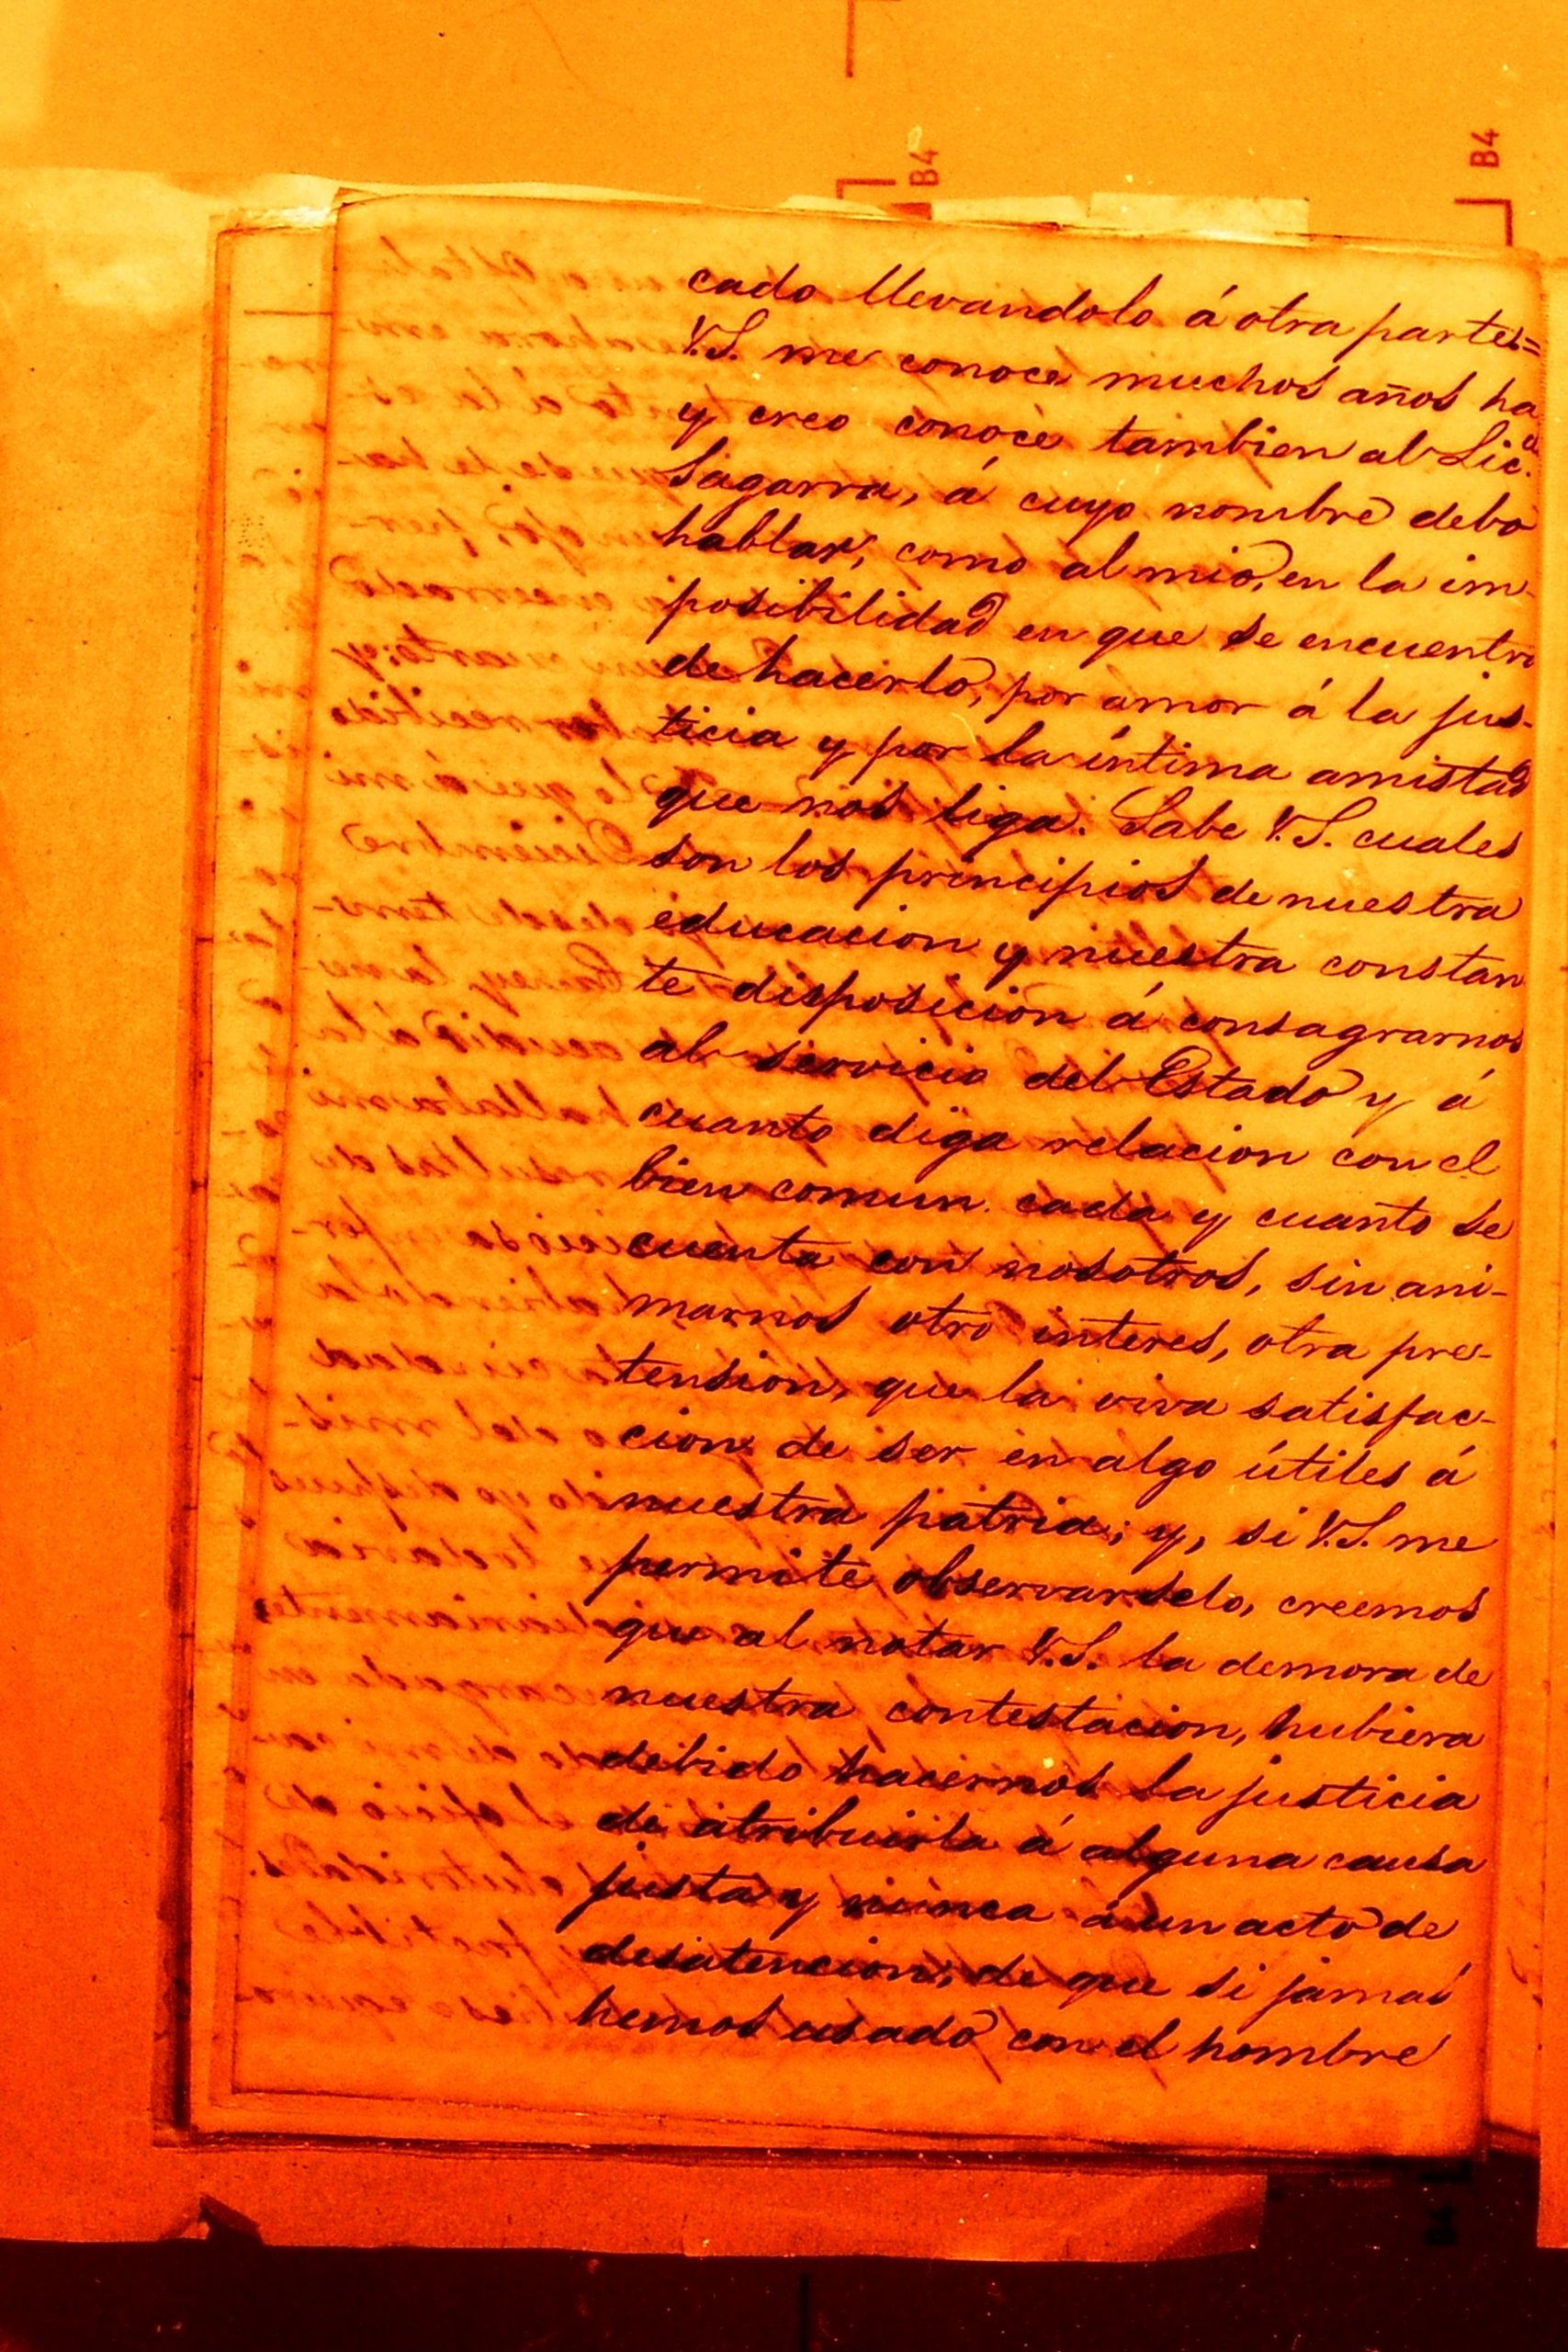 B4
B4
cado llevandolo á otra partes=
V.S. me conoce muchos años ha
y creo conoce tambien al Lic.do
Sagarra, á cuyo nombre debo
hablar, como al mio, en la im-
posibilidad en que se encuentra
de hacerlo, por amor á la jus-
ticia y por la íntima amistad
que nos liga. Sabe V.S. cuales
son los principios de nuestra
educacion y nuestra constan
te disposicion á consagrarnos
al servicio del Estado y á
cuanto diga relacion con el
bien comun cada y cuanto se
cuenta con nosotros, sin ani-
marnos otro interes, otra pre-
tension, que la viva satisfac-
cion de ser en algo útiles á
nuestra patria; y, si V.S. me
permite observarselo, creemos
que al notar V.S. la demora de
nuestra contestacion, hubiera
debido hacernos la justicia
de atribuirla á alguna causa
justa y nunca á un acto de
desatencion, de que si jamas
hemos usado con el hombre